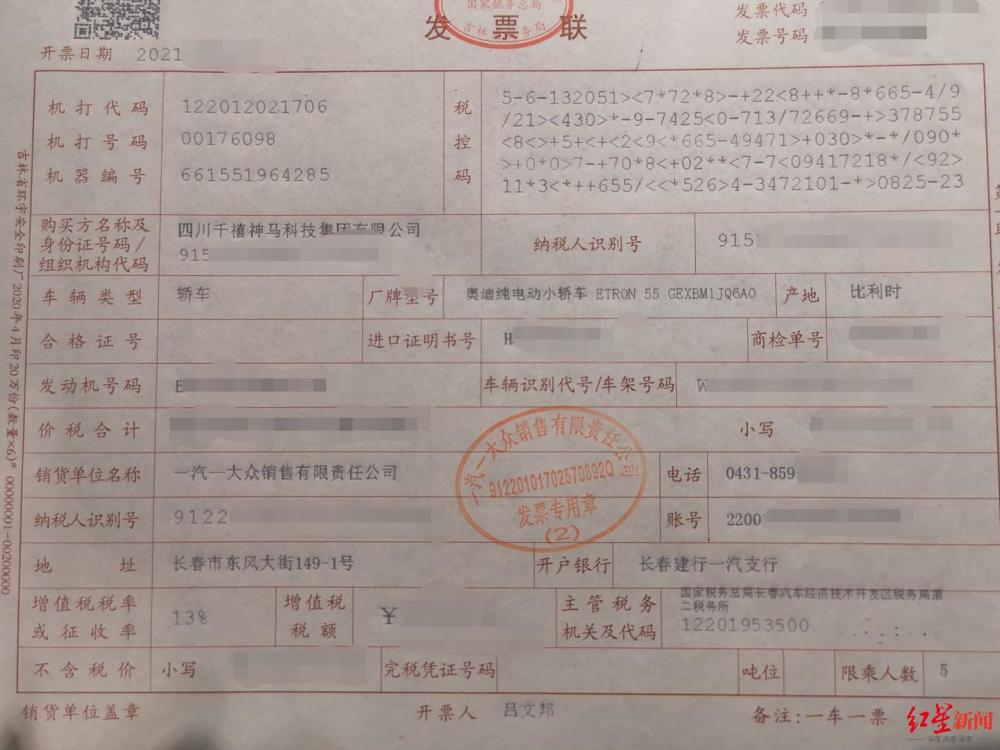 国家税务总局
发票联
吉林 务局
发票代码
发票号码
开票日期 2021
机打代码 122012021706
机打号码 00176098
机器编号 661551964285
税控码
5-6-132051><7*72*8>-+22<8++*-8*665-4/9
/21><430>*-9-7425<0-713/72669-+>378755
<8<>+5+<+<2<9<*665-49471>+030>*-*/090*
>+0*0>7-+70*8<+02**<7-7<09417218*/<92>
11*3<*++655/<<*526>4-3472101-*>0825-23
购买方名称及
身份证号码/
组织机构代码
四川千禧神马科技集团有限公司
915
纳税人识别号 915
车辆类型 轿车 厂牌型号 奥迪纯电动小轿车 ETRON 55 GEXBM1JQ6A0 产地 比利时
合格证号 进口证明书号 H 商检单号
发动机号码 E 车辆识别代号/车架号码 W
价税合计 小写
销货单位名称 一汽一大众销售有限责任公司 电话 0431-859
纳税人识别号 9122 账号 2200
一汽一大众销售有限责任公司
91220101702570892Q
发票专用章
(2)
地址 长春市东风大街149-1号 开户银行 长春建行一汽支行
增值税税率
或征收率
13%
增值税
税额
¥
主管税务
机关及代码
国家税务总局长春汽车经济技术开发区税务局第
二税务所
12201953500
不含税价 小写 完税凭证号码 吨位 限乘人数 5
销货单位盖章 开票人 吕文邦 备注:一车一票
吉林省环宇安全印刷厂2020年4月印20万份(数量×6)# 00000001-00200000
红星新闻